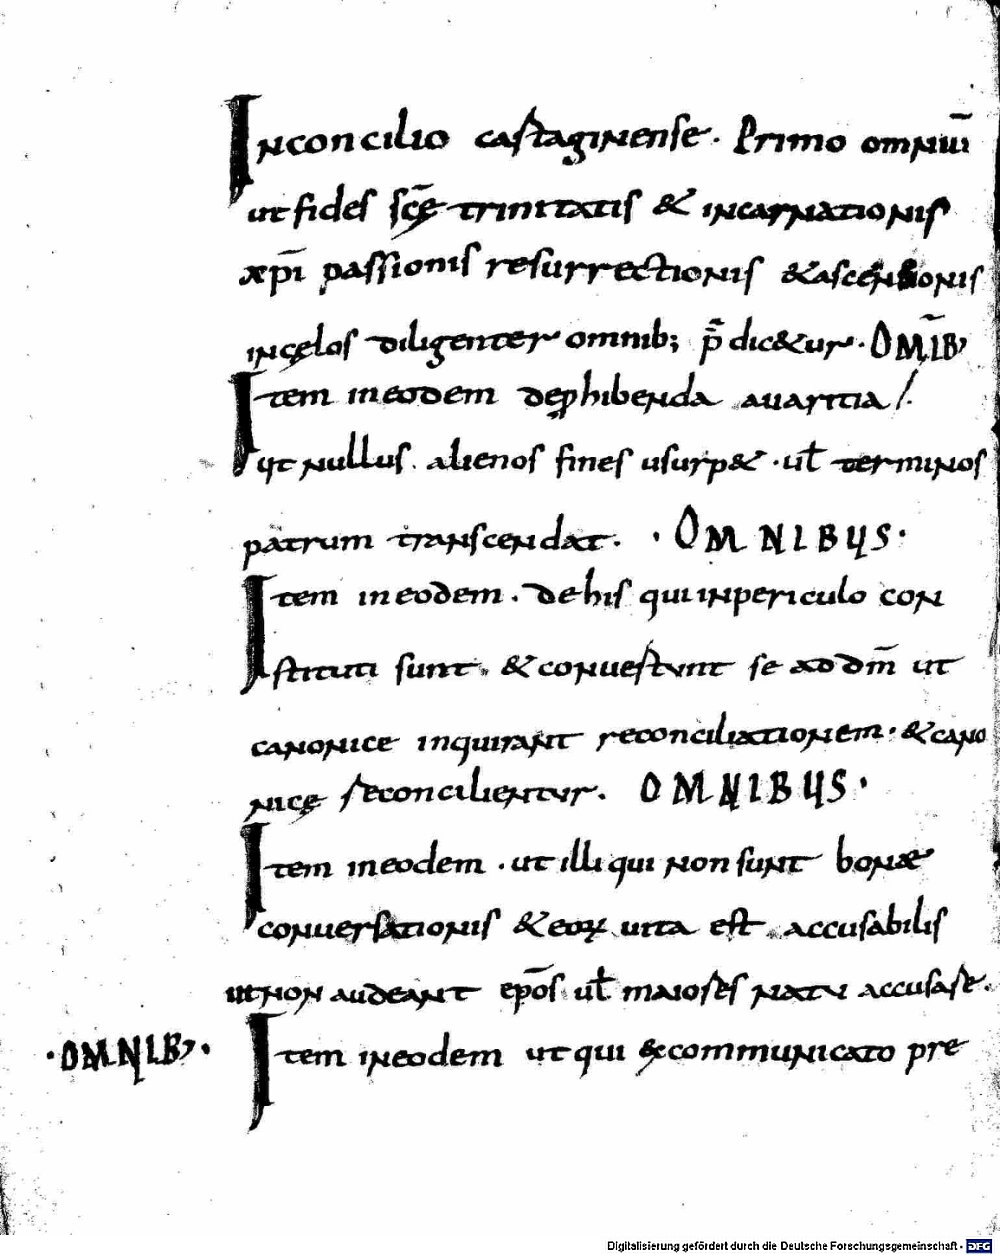 Inconcilio cartaginense. Primo omniū
ut fides scę̄ trinitatis & incarnationis
xp̄i passionis resurrectionis & ascensionis
incęlos diligenter omnib; p̄dic&ur. OMN̄IB,
Item ineodem dep̱hibenda auaritia
ut nullus alienos fines usurp& · ul̄ terminos
patrum transcendat. · OMNIBUS ·
Item ineodem. dehis quiinpericulo con
stituti sunt. & conuertunt se ad dm̄ ut
canonice inquirant reconciliationem · & cano
nicę reconcilientur. OMNIBUS ·
Item ineodem · ut illi qui non sunt bonæ
conuersationis & eoꝝ uita est accusabilis
ut non audeant ep̄os ul̄ maiores natu accusare.
· OMNIB, · Item ineodem ut qui excommunicato pre
Digitalisierung gefördert durch die Deutsche Forschungsgemeinschaft - DFG